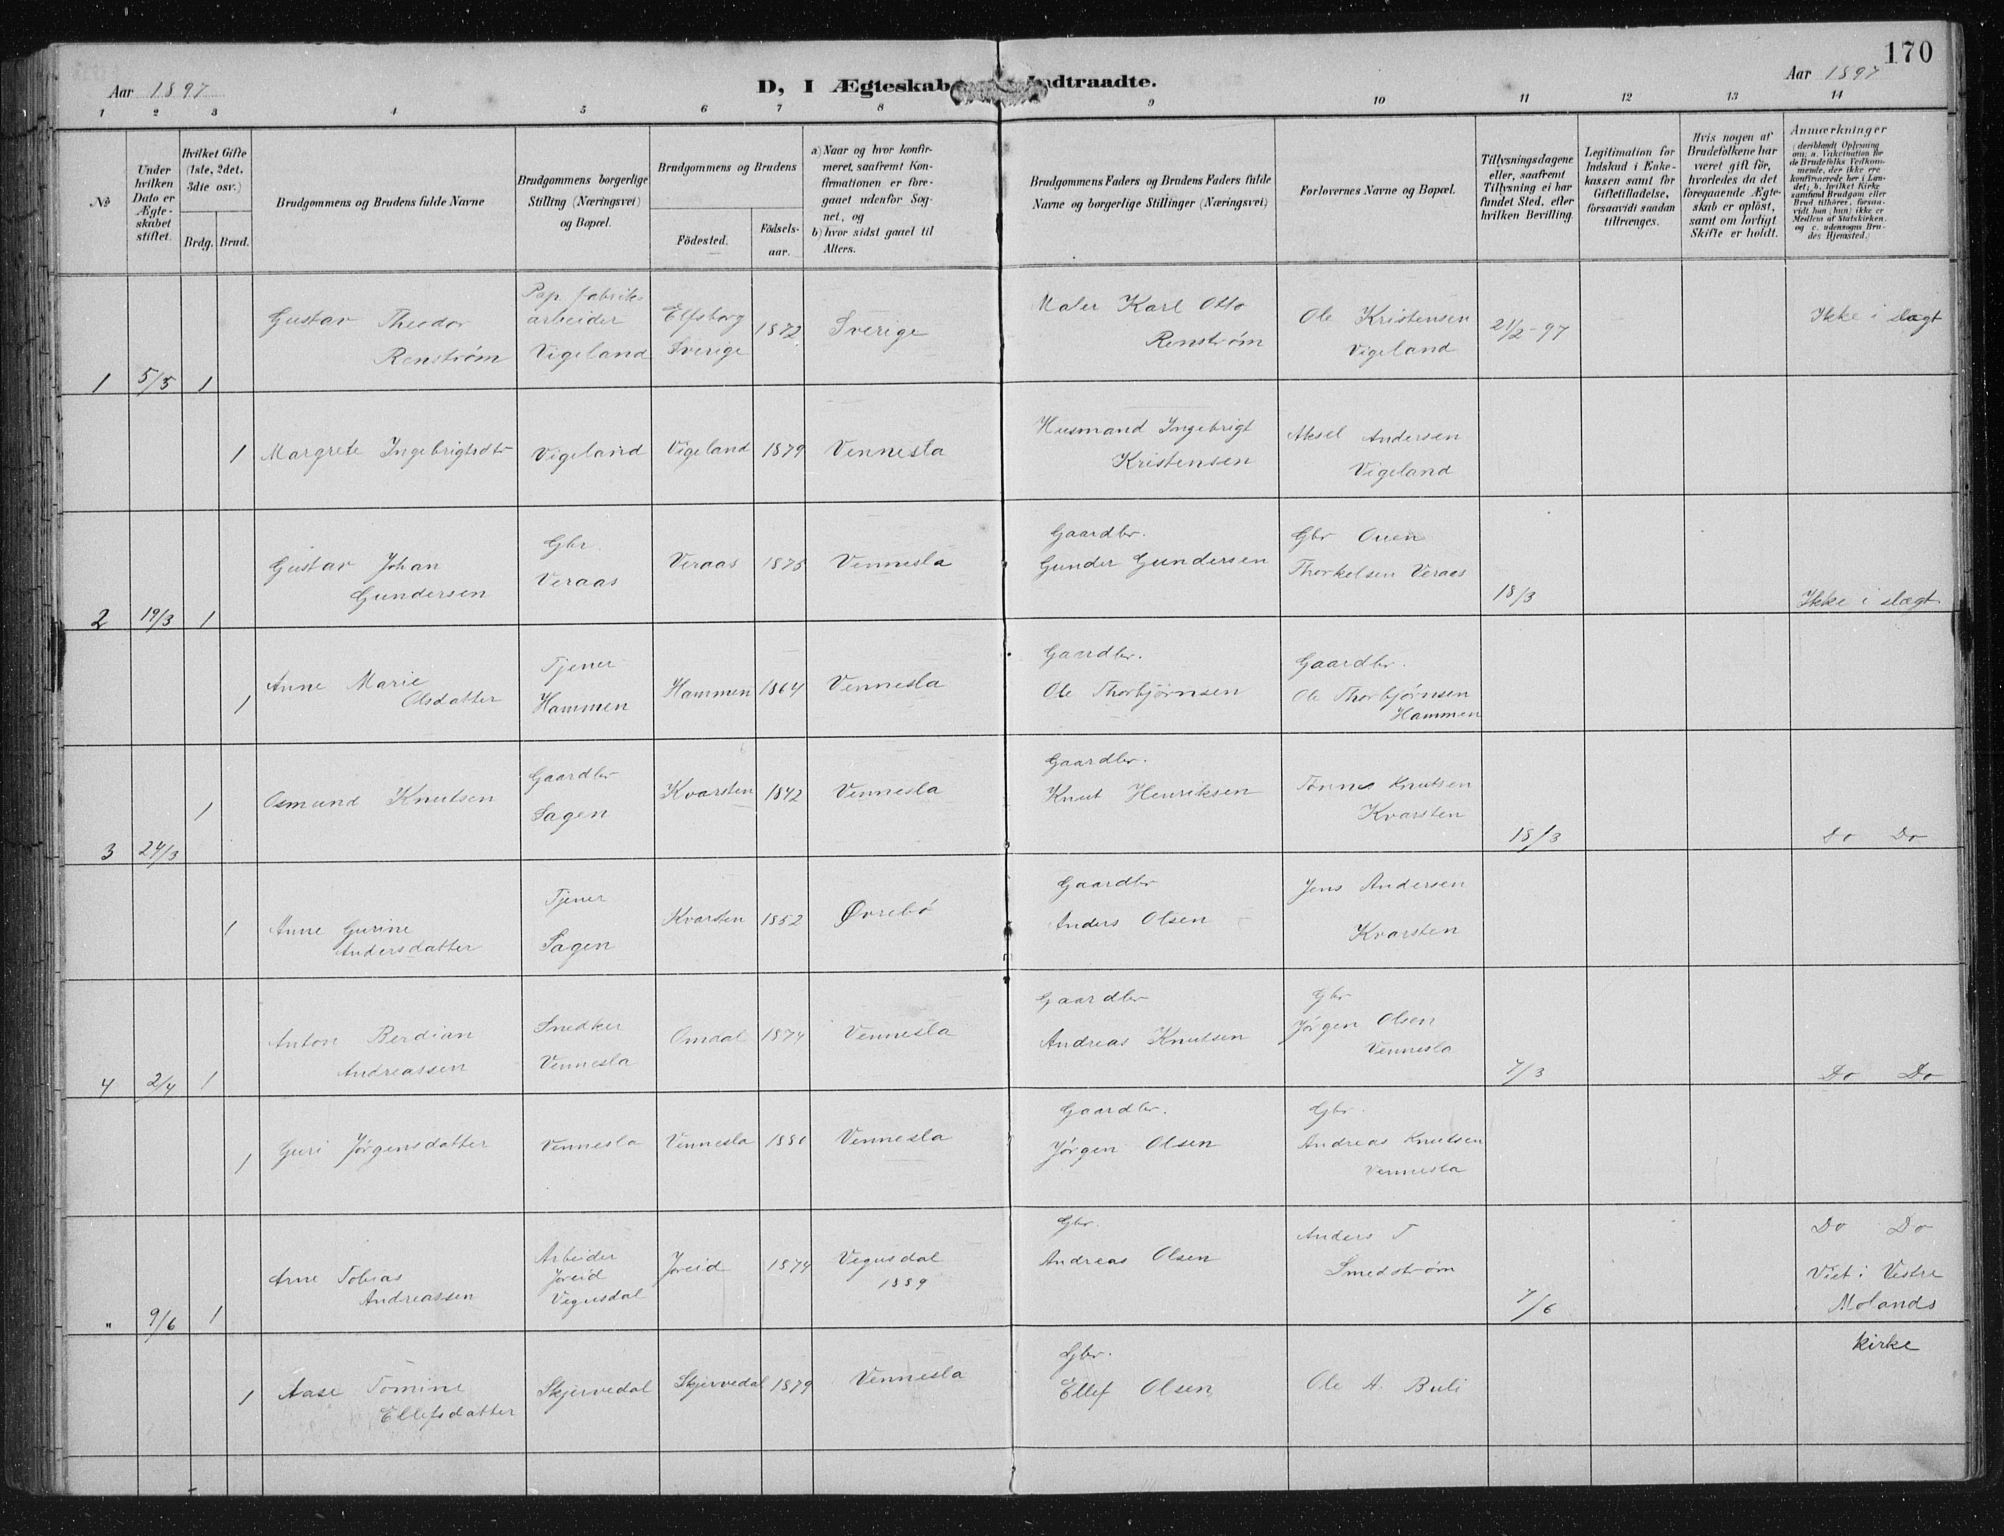 170
Aar 1897
D, I Ægteskab indtraadte.
Aar 1897
1 2 3 4 5 6 7 8 9 10 11 12 13 14
No
Under hvilken Dato er Ægteskabet stiftet.
Hvilket Gifte (1ste, 2det, 3die osv.)
Brdg. Brud.
Brudgommens og Brudens fulde Navne
Brudgommens borgerlige Stilling (Næringsvei) og Bopæl.
Brudgommens og Brudens
Födested.
Födsels-aar.
a) Naar og hvor konfirmeret, saafremt Konfirmationen er foregaaet udenfor Sognet, og
b) hvor sidst gaaet til Alters.
Brudgommens Faders og Brudens Faders fulde Navne og borgerlige Stillinger (Næringsvei)
Forlovernes Navne og Bopæl.
Tillysningsdagene eller, saafremt Tillysning ei har fundet Sted, efter hvilken Bevilling.
Legitimation for Indskud i Enkekassen samt for Giftetilladelse, forsaavidt saadan tiltrænges.
Hvis nogen af Brudefolkene har været gift før, hvorledes da det foregaaende Ægteskab er oplöst, samt om lovligt Skifte er holdt.
Anmærkninger
(deriblandt Oplysning om: a. Vakcination for de Brudefolks Vedkommende, der ikke ere konfirmerede her i Landet; b. hvilket Kirkesamfund Brudgom eller Brud tilhörer, forsaavidt han (hun) ikke er Medlem af Statskirken, og c. udensogns Brudes Hjemsted.)
1 5/5 1 Gustav Theodor Renstrøm
Pap. fabrik arbeider Vigeland
Elfsborg Sverige 1872 Sverige
Maler Karl Otto Renstrøm
Ole Kristensen Vigeland
21/2-97
Ikke i slægt
1 Margrete Ingebrigtsdtr
Vigeland Vigeland 1879 Vennesla
Husmand Ingebrigt Kristensen
Aksel Andersen Vigeland
2 19/3 1 Gustav Johan Gundersen
Gbr. Veraas
Veraas 1875 Vennesla
Gaardbr. Gunder Gundersen
Gbr Ouen Thorkelsen Veraas
18/3
Ikke i slægt
1 Anne Marie Olsdatter
Tjener Hammen
Hammen 1864 Vennesla
Gaardbr. Ole Thorbjørnsen
Gaardbr. Ole Thorbjørnsen Hammen
3 24/3 1 Osmund Knutsen
Gaardbr Sagen
Kvarsten 1842 Vennesla
Gaardbr. Knut Henriksen
Tønnes Knutsen Kvarsten
18/3
Do Do
1 Anne Gurine Andersdatter
Tjener Sagen
Kvarsten 1852 Øvrebø
Gaardbr Anders Olsen
Jens Andersen Kvarsten
4 2/4 1 Anton Berdian Andreassen
Snedker Vennesla
Omdal 1874 Vennesla
Gaardbr Andreas Knutsen
Gbr Jørgen Olsen Vennesla
7/3
Do Do
1 Guri Jørgensdatter
Vennesla Vennesla Vennesla
Gaardbr. Jørgen Olsen
Gbr. Andreas Knutsen Vennesla
" 9/6 1 Arne Tobias Andreassen
Arbeider Joreid Vegusdal
Joreid 1874 Vegusdal 1889
Gbr. Andreas Olsen
Anders T Smedstrøm
7/6
Do Do
Viet i Vestre Molands kirke
1 Aase Tomine Ellefsdatter
Skjervedal Skjervedal 1879 Vennesla
Gbr. Ellef Olsen
Ole A. Buli